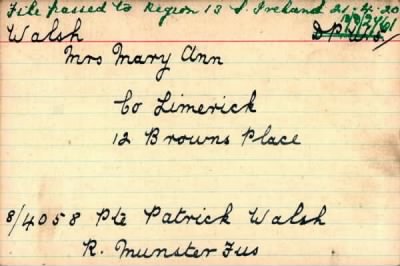 File passed to Region 13 S. Ireland 21.4.20
Walsh
Mrs Mary Ann
Co Limerick
12 Browns Place
8/4058 Pte Patrick Walsh
R. Munster Fus